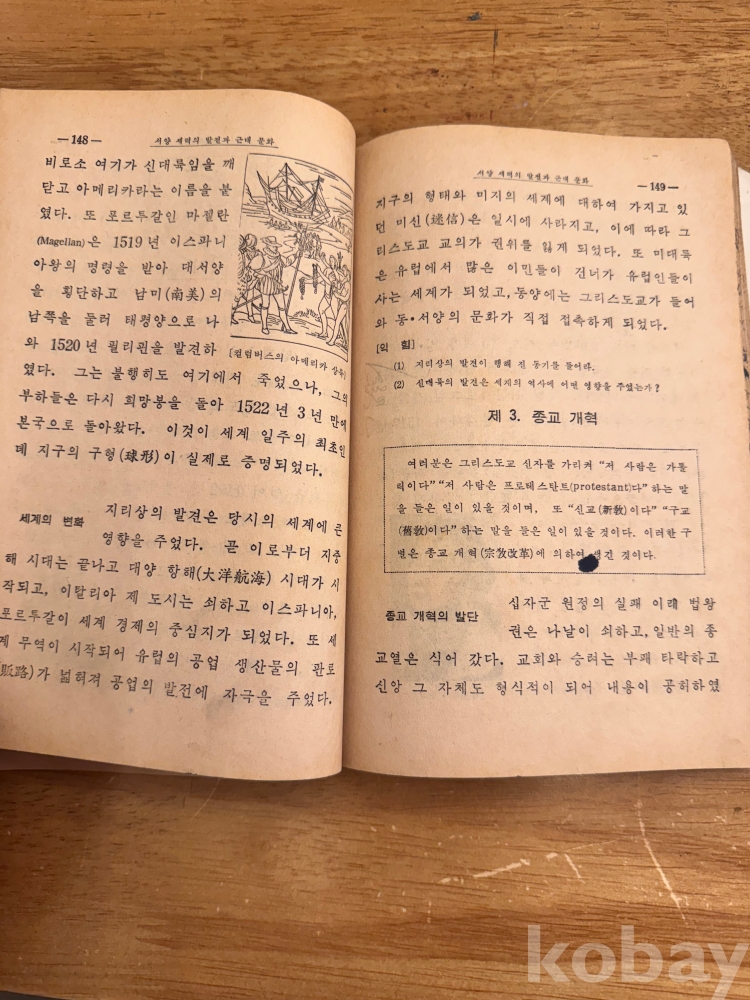 —148— 서양 세력의 발전과 근대 문화
비로소 여기가 신대륙임을 깨
닫고 아메리카라는 이름을 붙
였다. 또 포르투갈인 마젤란
(Magellan)은 1519년 이스파니
아왕의 명령을 받아 대서양
을 횡단하고 남미(南美)의
남쪽을 둘러 태평양으로 나
와 1520년 필리핀을 발견하
[컬럼버스의 아메리카 상륙]
였다. 그는 불행히도 여기에서 죽었으나, 그의
부하들은 다시 희망봉을 돌아 1522년 3년 만에
본국으로 돌아왔다. 이것이 세계 일주의 최초인
데 지구의 구형(球形)이 실제로 증명되었다.
세계의 변화
지리상의 발견은 당시의 세계에 큰
영향을 주었다. 곧 이로부터 지중
해 시대는 끝나고 대양 항해(大洋航海) 시대가 시
작되고, 이탈리아 제 도시는 쇠하고 이스파니아,
포르투갈이 세계 경제의 중심지가 되었다. 또 세
계 무역이 시작되어 유럽의 공업 생산물의 판로
(販路)가 넓혀져 공업의 발전에 자극을 주었다.
서양 세력의 발전과 근대 문화 —149—
지구의 형태와 미지의 세계에 대하여 가지고 있
던 미신(迷信)은 일시에 사라지고, 이에 따라 그
리스도교 교의가 권위를 잃게 되었다. 또 미대륙
은 유럽에서 많은 이민들이 건너가 유럽인들이
사는 세계가 되었고, 동양에는 그리스도교가 들어
와 동·서양의 문화가 직접 접촉하게 되었다.
[익 힘]
(1) 지리상의 발견이 행해 진 동기를 들어라.
(2) 신대륙의 발견은 세계의 역사에 어떤 영향을 주었는가?
제 3. 종교 개혁
여러분은 그리스도교 신자를 가리켜 "저 사람은 가톨
릭이다" "저 사람은 프로테스탄트(protestant)다" 하는 말
을 들은 일이 있을 것이며, 또 "신교(新敎)이다" "구교
(舊敎)이다" 하는 말을 들은 일이 있을 것이다. 이러한 구
별은 종교 개혁(宗敎改革)에 의하여 생긴 것이다.
종교 개혁의 발단
십자군 원정의 실패 이래 법왕
권은 나날이 쇠하고, 일반의 종
교열은 식어 갔다. 교회와 승려는 부패 타락하고
신앙 그 자체도 형식적이 되어 내용이 공허하였
kobay